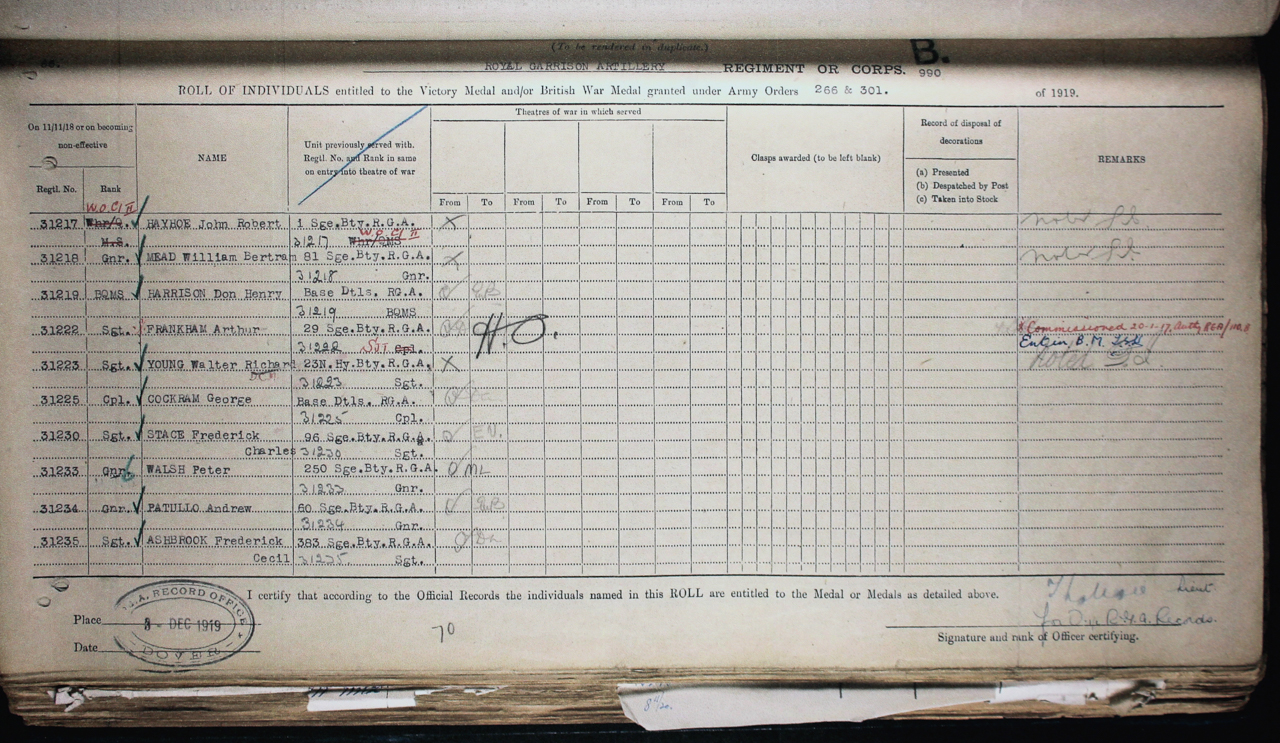 (To be rendered in duplicate.)
B.
ROYAL GARRISON ARTILLERY REGIMENT OR CORPS. 990
ROLL OF INDIVIDUALS entitled to the Victory Medal and/or British War Medal granted under Army Orders 266 & 301. of 1919.
On 11/11/18 or on becoming non-effective
Regtl. No. Rank
NAME
Unit previously served with.
Regtl. No. and Rank in same
on entry into theatre of war
Theatres of war in which served
From To From To From To From To
Clasps awarded (to be left blank)
Record of disposal of decorations
(a) Presented
(b) Despatched by Post
(c) Taken into Stock
REMARKS
W.O. Cl II
31217 Whr/Q. HAYHOE John Robert 1 Sge.Bty.R.G.A. X
W.O. Cl II
M.S. 31217 Whr/QMS
31218 Gnr. MEAD William Bertram 81 Sge.Bty.R.G.A. X
31218 Gnr.
31219 BQMS HARRISON Don Henry Base Dtls. RG.A.
31219 BQMS
31222 Sgt. FRANKHAM Arthur 29 Sge.Bty.R.G.A. H.O. Commissioned 20-1-17.
31222 SJT Cpl. Ent in B.M.
31223 Sgt. YOUNG Walter Richard 23N.Hy.Bty.R.G.A. X Noted
31223 Sgt.
31225 Cpl. COCKRAM George Base Dtls. RG.A.
31225 Cpl.
31230 Sgt. STACE Frederick 96 Sge.Bty.R.G.A. EN.
Charles 31230 Sgt.
31233 Gnr WALSH Peter 250 Sge.Bty.R.G.A. ML
31233 Gnr.
31234 Gnr. PATULLO Andrew 60 Sge.Bty.R.G.A.
31234 Gnr.
31235 Sgt. ASHBROOK Frederick 383 Sge.Bty.R.G.A.
Cecil 31235 Sgt.
I certify that according to the Official Records the individuals named in this ROLL are entitled to the Medal or Medals as detailed above.
Place
Date
R.G.A. RECORD OFFICE
8 - DEC 1919
DOVER
70
Lieut
for O. i/c R.G.A. Records.
Signature and rank of Officer certifying.